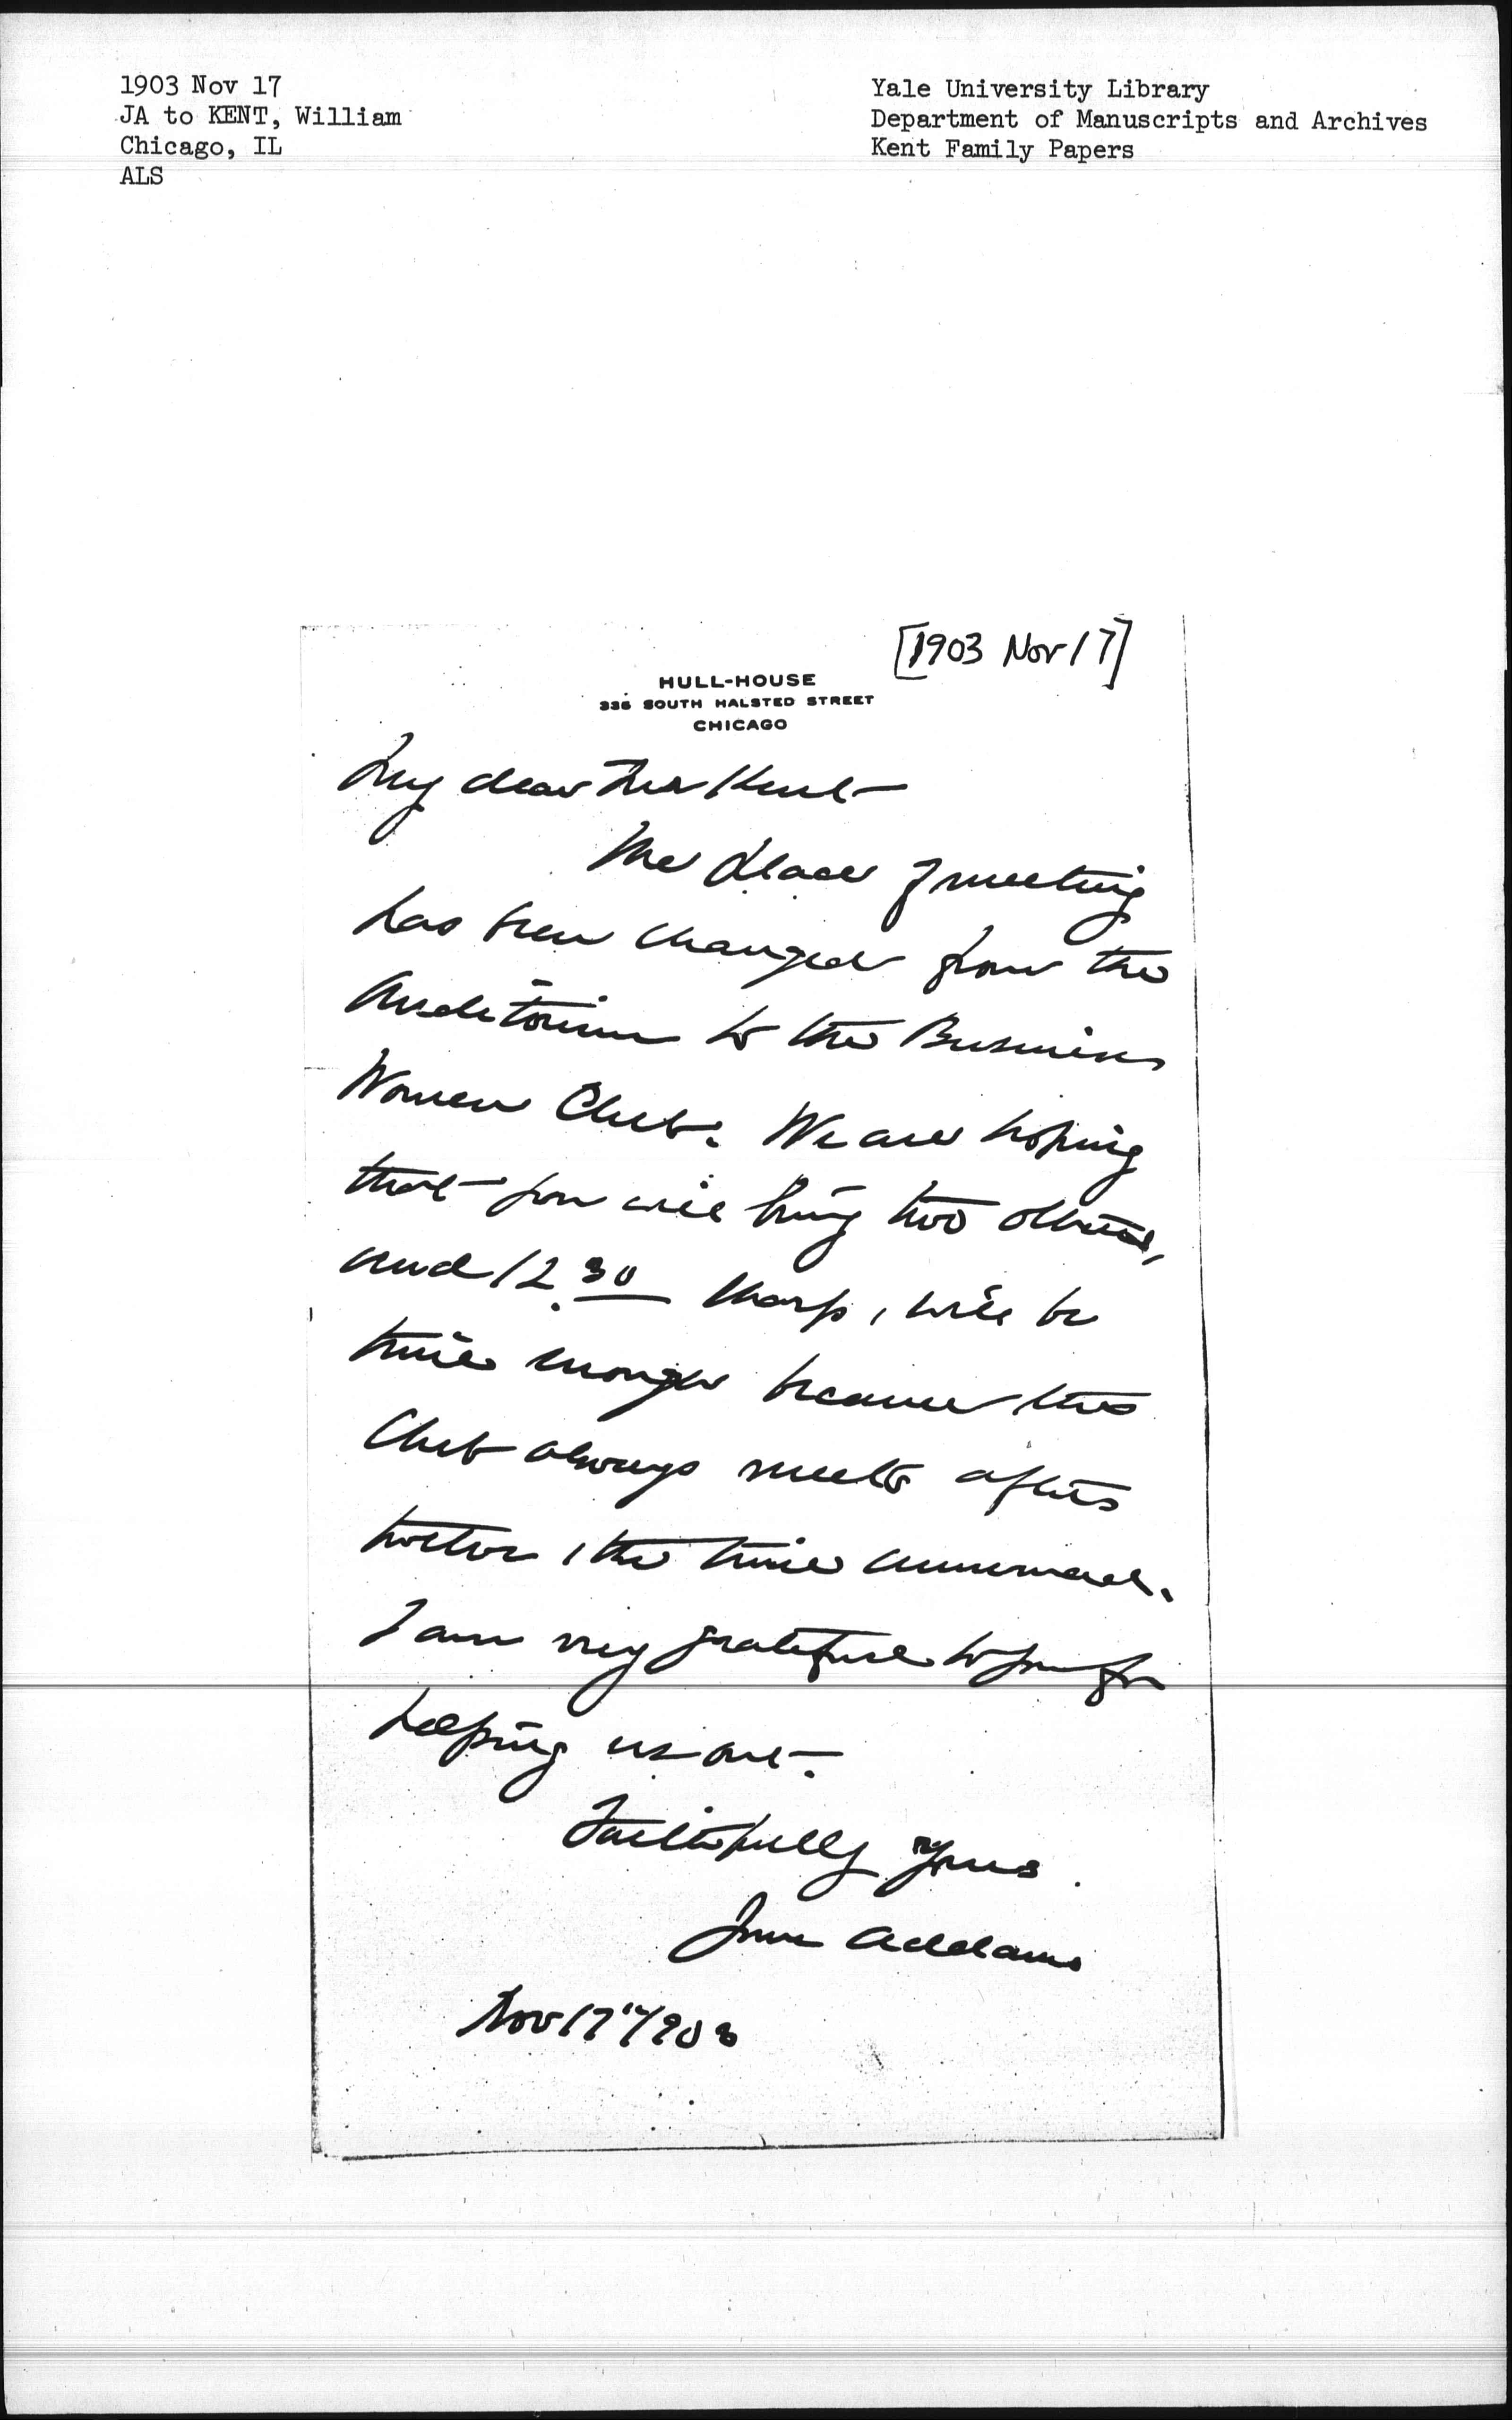 1903 Nov 17
JA to KENT, William
Chicago, IL
ALS
Yale University Library
Department of Manuscripts and Archives
Kent Family Papers
[1903 Nov 17]
HULL-HOUSE
335 SOUTH HALSTED STREET
CHICAGO
My dear Mr Kent—
The place of meeting
has been changed from the
Auditorium to the Business
Women Club. We are hoping
that you will bring two others,
and 12.30 sharp, will be
time enough because the
Club always meets after
twelve, the time announced.
I am very grateful to you for
helping us out.
Faithfully yours
Jane Addams
Nov 17" 1903